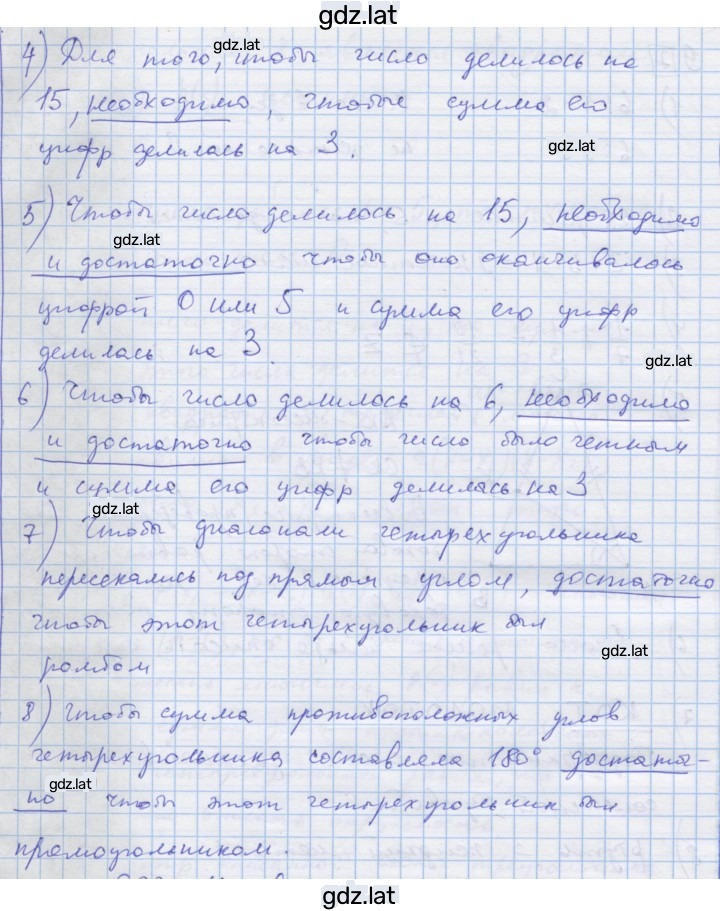 gdz.lat
gdz.lat
4) Для того, чтобы число делилось на
15, необходимо, чтобы сумма его
цифр делилась на 3.
gdz.lat
5) Чтобы число делилось на 15, необходимо
gdz.lat
и достаточно чтобы оно оканчивалось
цифрой 0 или 5 и сумма его цифр
делилась на 3.
gdz.lat
6) Чтобы число делилось на 6, необходимо
и достаточно чтобы число было четным
и сумма его цифр делилась на 3
gdz.lat
7) Чтобы диагонали четырехугольника
пересекались под прямым углом, достаточно
чтобы этот четырехугольник был
gdz.lat
ромбом
8) Чтобы сумма противоположных углов
четырехугольника составляла 180° достато-
gdz.lat
но чтобы этот четырехугольник был
прямоугольником.
gdz.lat